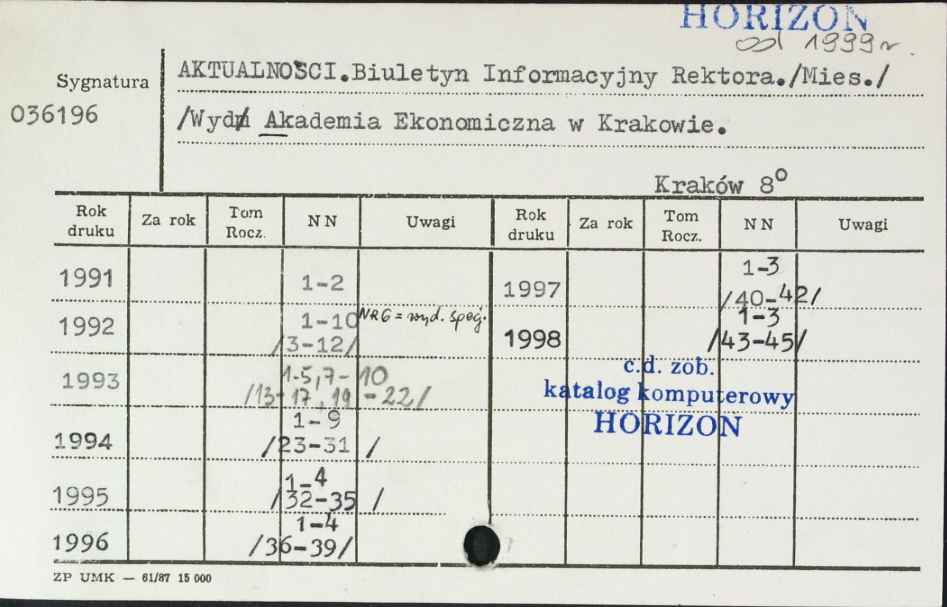 HORIZON
od 1999r.
Sygnatura
036196
AKTUALNOŚCI.Biuletyn Informacyjny Rektora./Mies./
/Wyd. Akademia Ekonomiczna w Krakowie.
Kraków 8°
Rok druku Za rok Tom Rocz. NN Uwagi Rok druku Za rok Tom Rocz. NN Uwagi
1991 1-2
1992 1-10 NR 6 = wyd. specj.
/3-12/
1993 1-5,7-10
/13-17, 19-22/
1994 1-9
/23-31 /
1995 1-4
/32-35 /
1996 1-4
/36-39/
1997 1-3
/40-42/
1998 1-3
/43-45/
c.d. zob.
katalog komputerowy
HORIZON
ZP UMK — 61/87 15 000